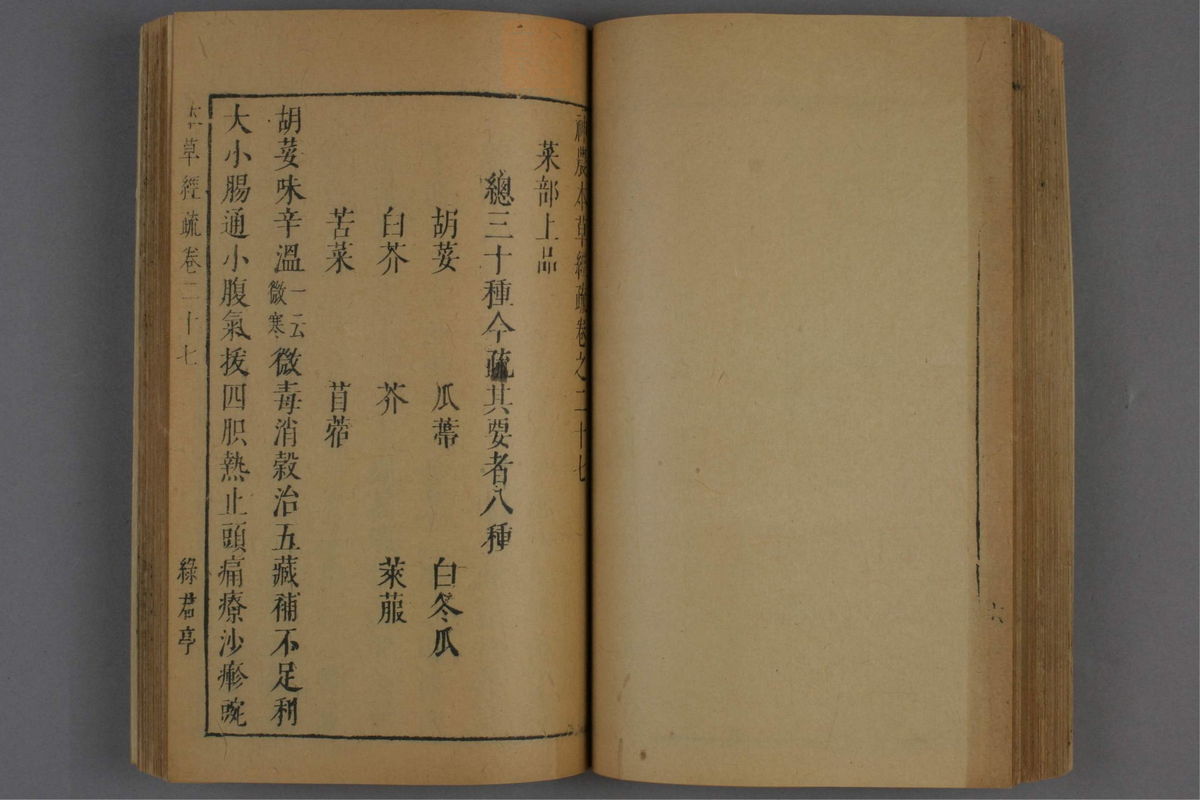 神農本草經疏卷之二十七
菜部上品
總三十種今疏其要者八種
胡荽 瓜蔕 白冬瓜
白芥 芥 萊菔
苦菜 苜蓿
胡荽味辛溫一云微寒微毒消榖治五藏補不足利
大小腸通小腹氣拔四肢熱止頭痛療沙瘮豌
本草經疏卷二十七 綠君亭
六